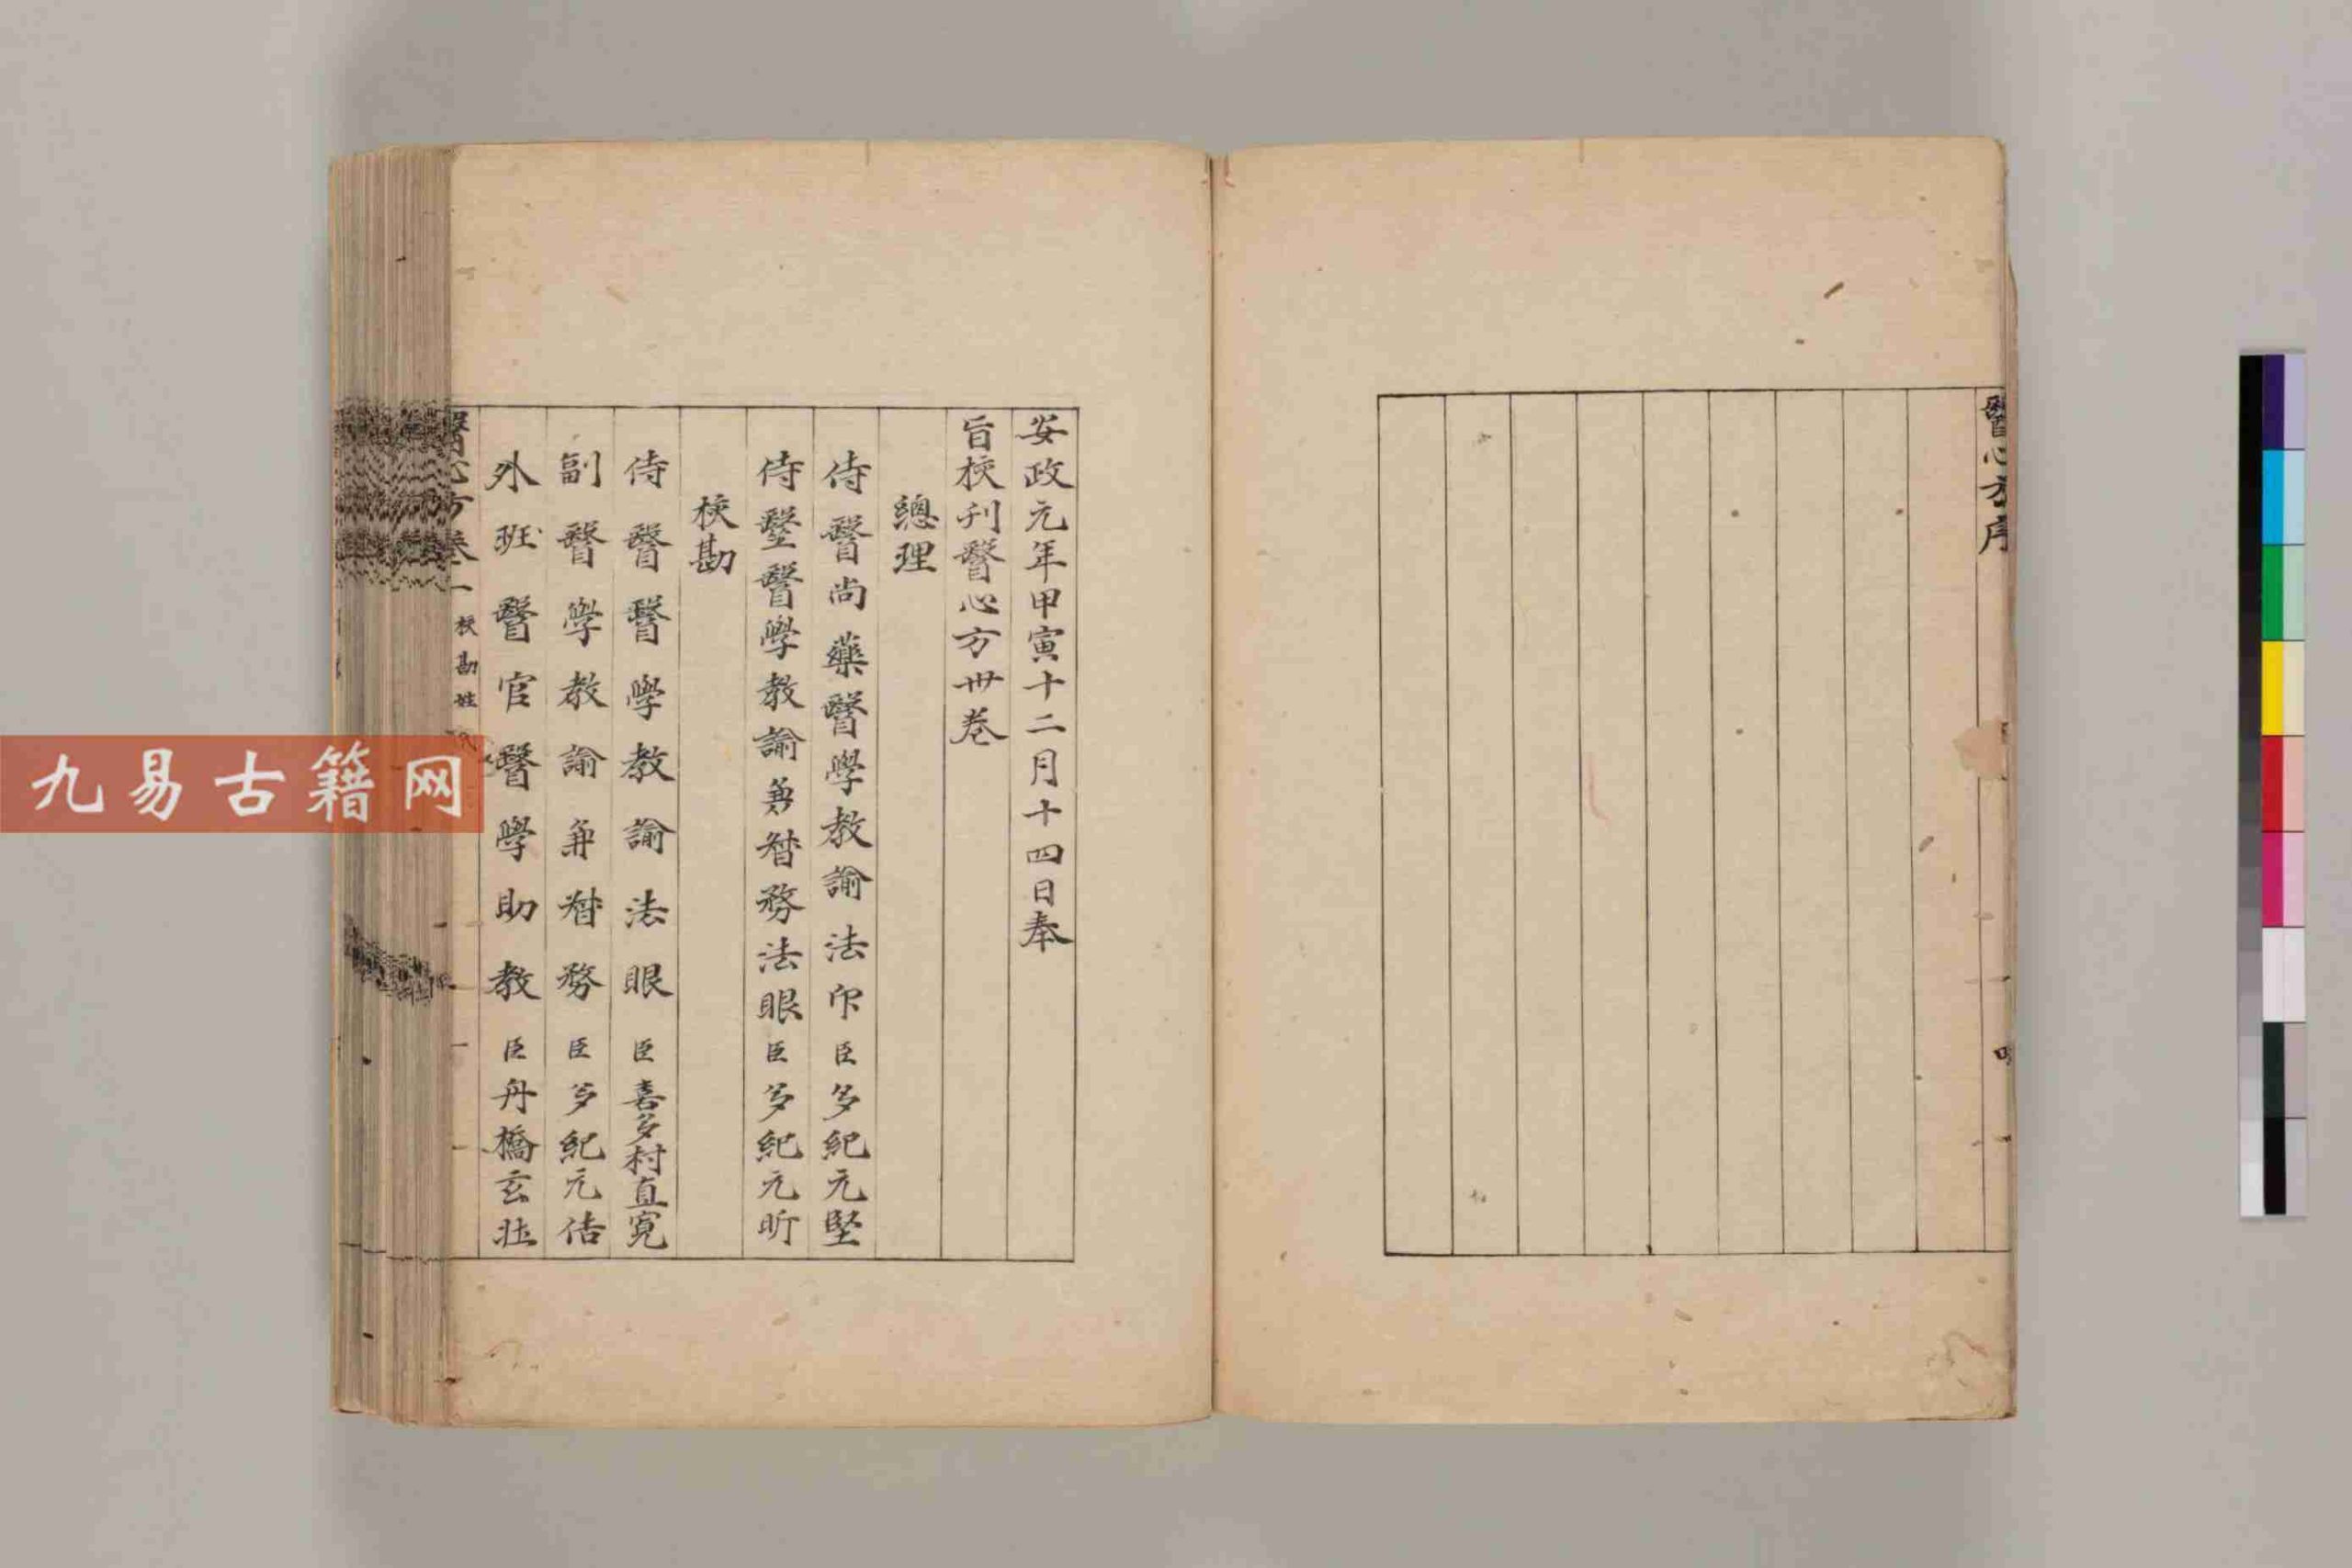 醫心方序
安政元年甲寅十二月十四日奉
旨校刊醫心方卅卷
總理
侍醫尚藥醫學教諭法印臣多紀元堅
侍醫醫學教諭兼督務法眼臣多紀元昕
校勘
侍醫醫學教諭法眼臣喜多村直寬
副醫學教諭兼督務臣多紀元佶
外班醫官醫學助教臣丹橋玄壯
醫心方卷一 校勘姓氏
九易古籍网